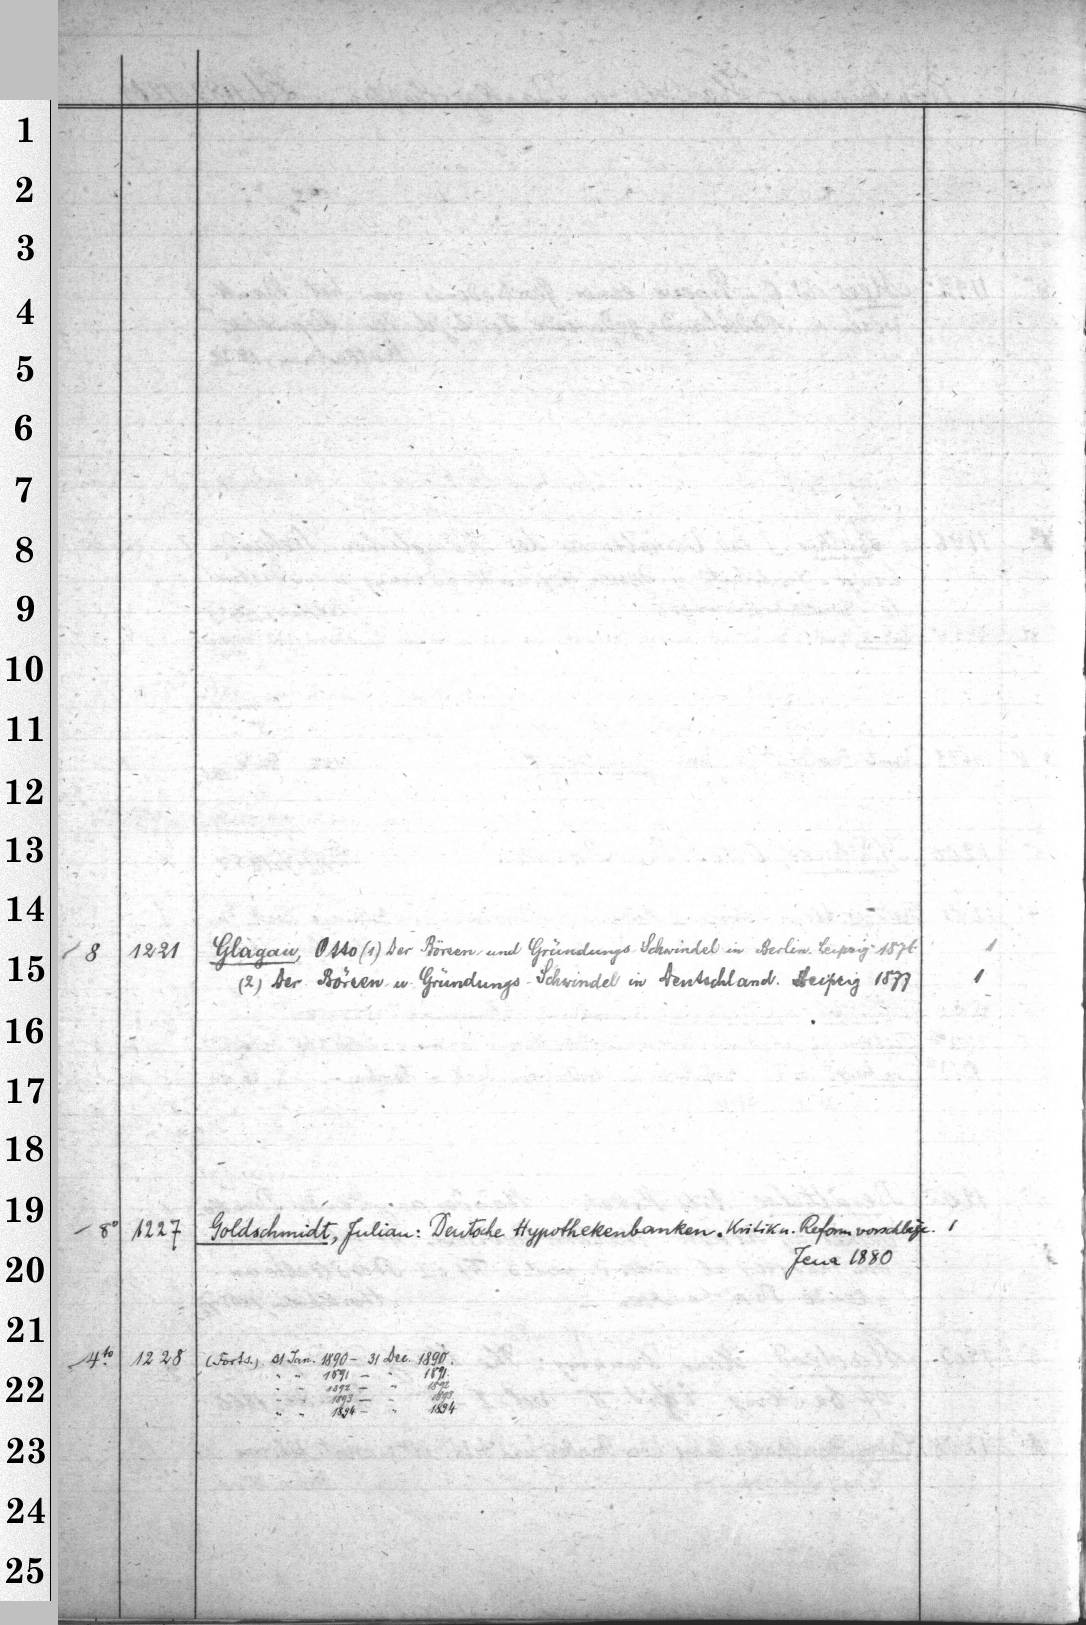 1
2
3
4
5
6
7
8
9
10
11
12
13
14
8 1221 Glagau, Otto (1) Der Börsen- und Gründungs-Schwindel in Berlin. Leipzig 1876 1
15
(2) Der Börsen- u Gründungs-Schwindel in Deutschland. Leipzig 1877 1
16
17
18
19
8° 1227 Goldschmidt, Julian: Deutsche Hypothekenbanken. Kritik u. Reformvorschläge. 1
Jena 1880
20
21
4to 1228 (Forts.) 01 Jan. 1890 - 31 Dec. 1890.
" " 1891 - " 1891.
22
" " 1892 - " 1892
" " 1893 - " 1893.
" " 1894 - " 1894
23
24
25